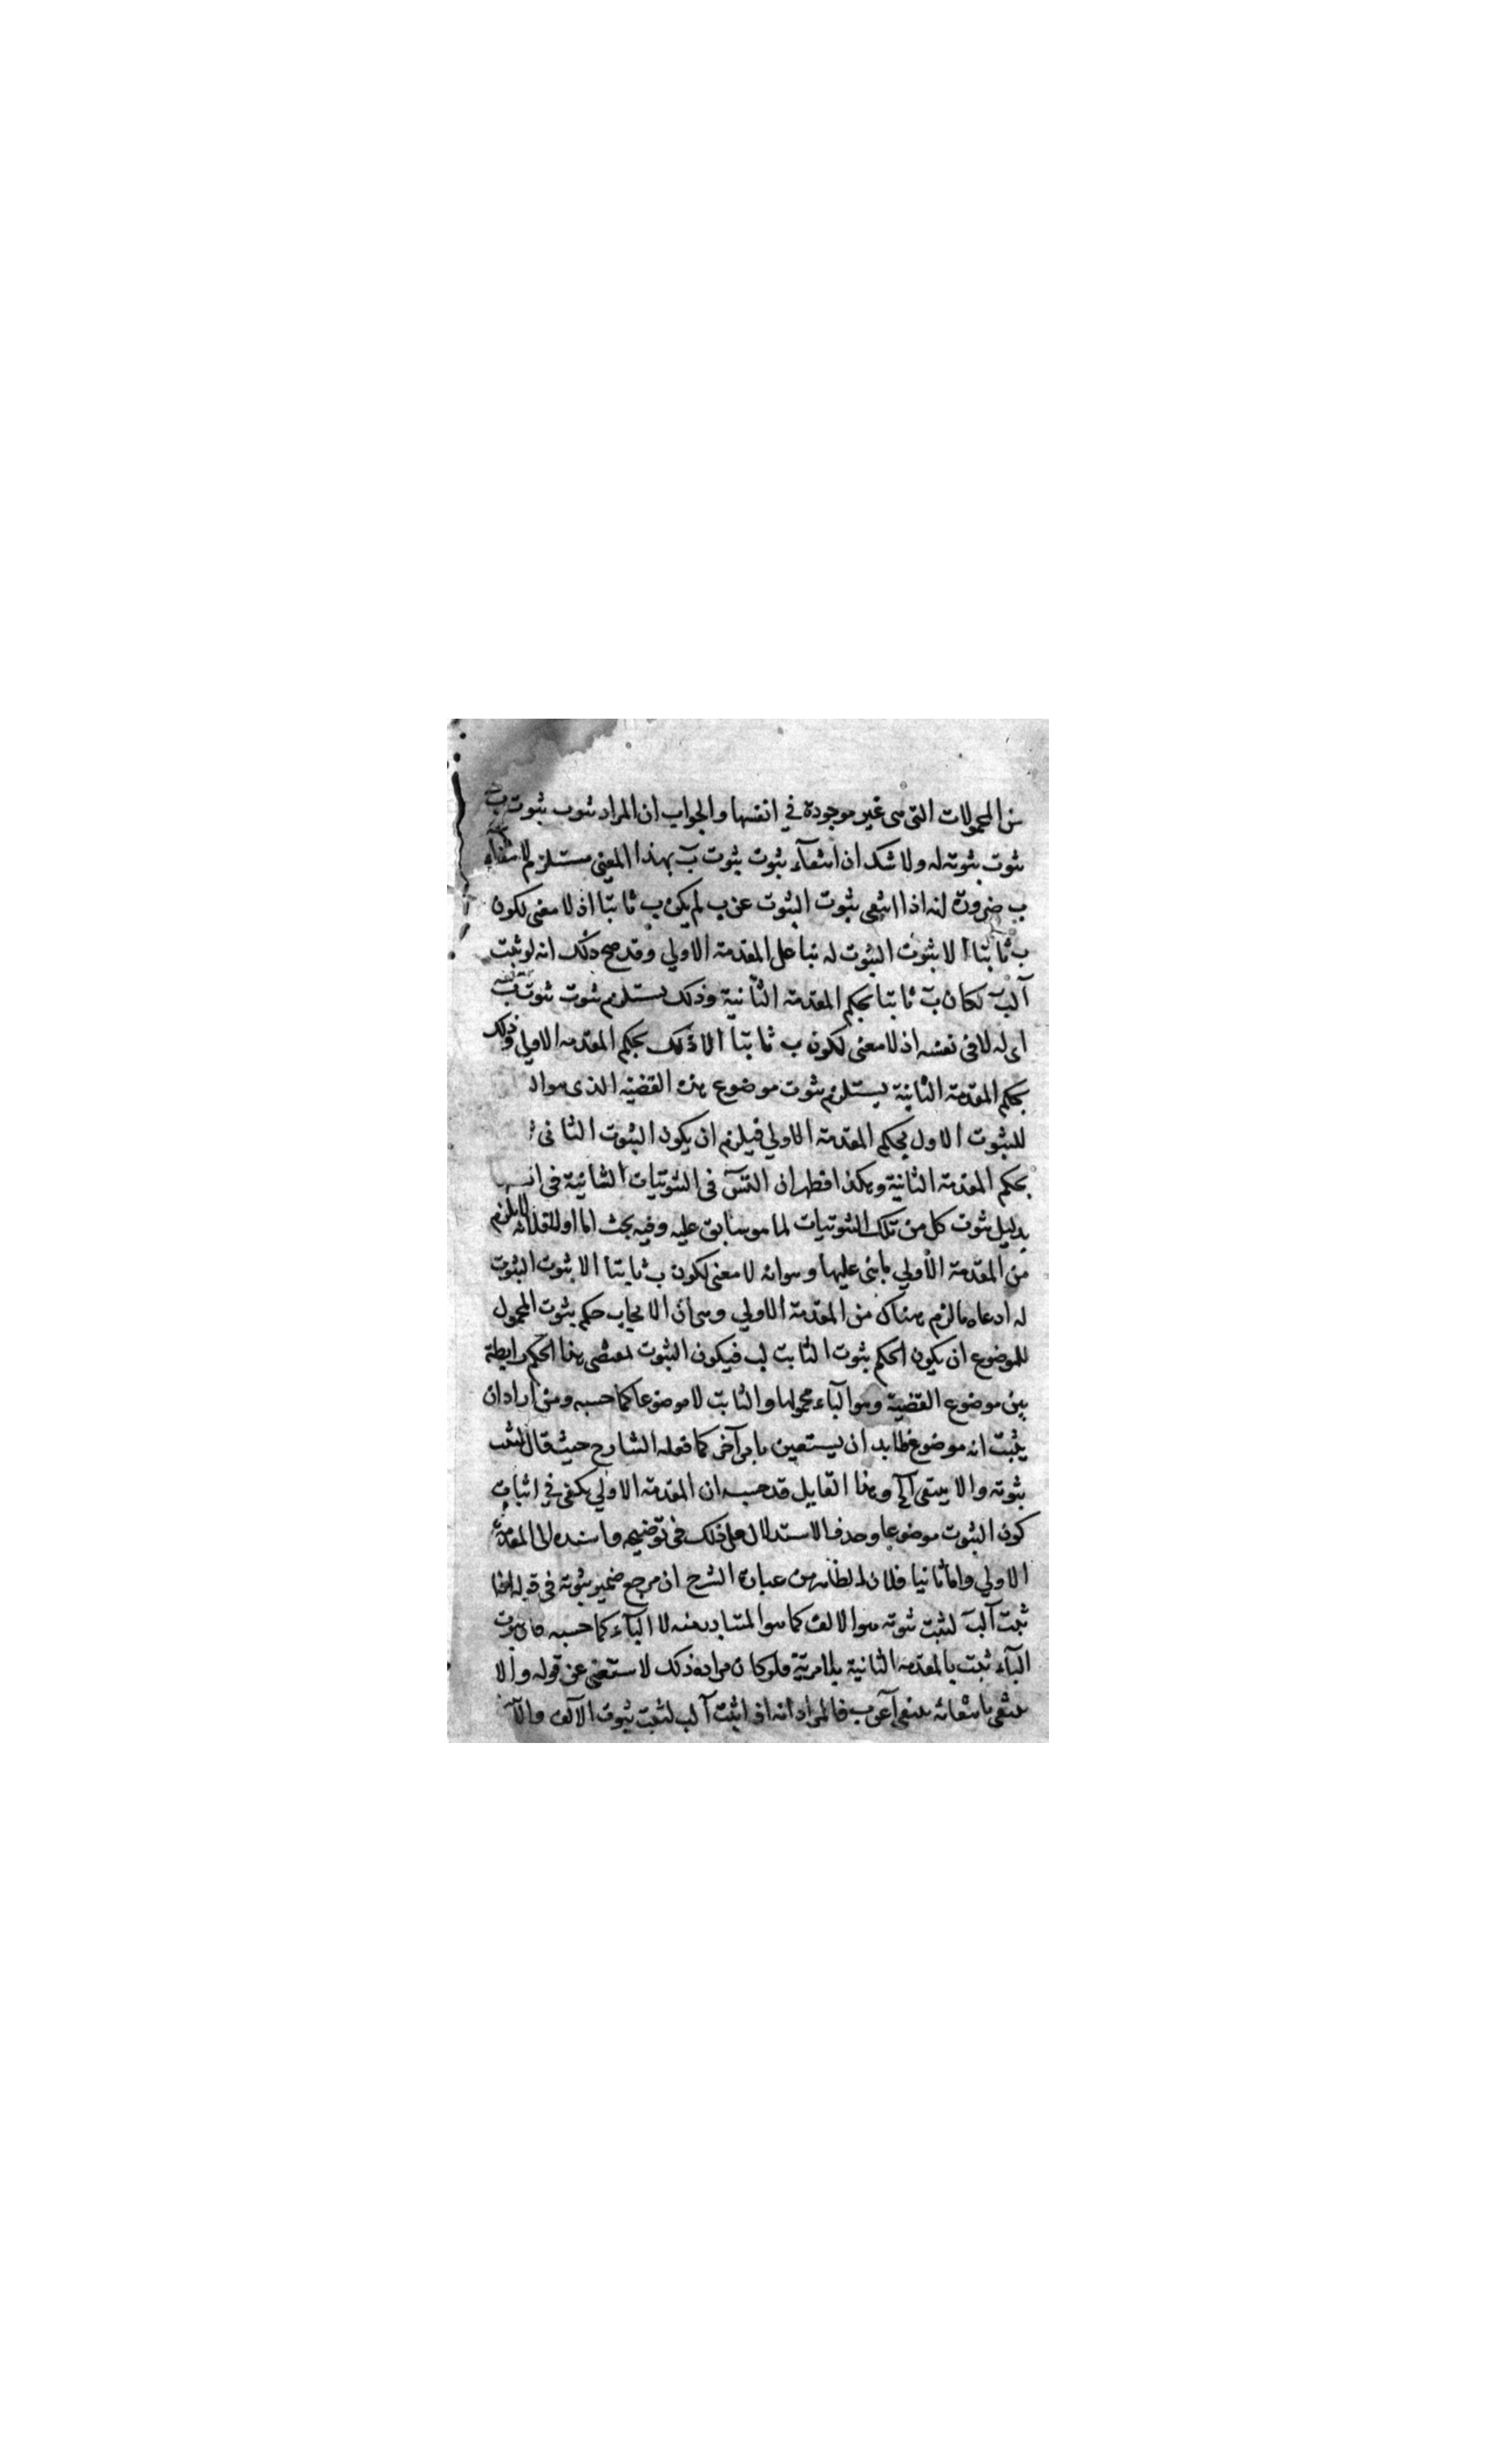 من المحمولات التى هى غير موجودة في انفسها والجواب ان المراد ثبوت ثبوت ب
ثبوت ثبوته له ولا شك ان انتفاء ثبوت ثبوت ب بهذا المعنى مستلزم لانتفاء
ب ضرورة انه اذا انتفى ثبوت الثبوت عن ب لم يكن ب ثابتا اذ لا معنى لكون
ب ثابتا الا ثبوت الثبوت له بنا على المقدمة الاولي وقد صح ذلك انه لو ثبت
آ لب لكان ب ثابتا بحكم المقدمة الثانية وذلك يستلزم ثبوت ثبوت ب
اى له لا فى نفسه اذ لا معنى لكون ب ثابتا الا ذلك بحكم المقدمه الاولي وذلك
بحكم المقدمة الثانية يستلزم ثبوت موضوع هذه القضية الذى هو ال
للثبوت الاول بحكم المقدمة الاولي فيلزم ان يكون الثبوت الثانى
بحكم المقدمة الثانية وهكذا فظهر ان التس فى الثبوتيات الثانية فى انفسها
بدليل ثبوت كل من تلك الثبوتيات لما هو سابق عليه وفيه بحث اما اولا فلانه لا يلزم
من المقدمة الاولي ما بنى عليها وهو انه لا معنى لكون ب ثابتا الا ثبوت الثبوت
له ادعاه ما لزم هناك من المقدمة الاولي وهى ان الايجاب حكم بثبوت المحمول
للموضوع ان يكون الحكم بثبوت الثابت لب فيكون الثبوت بمقتضى هذا الحكم رابطة
بين موضوع القضية وهو الباء ومحمولها والثابت لا موضوعا كما حسبه ومن اراد ان
يثبت انه موضوع فلا بد ان يستعين بامر آخر كما فعله الشارح حيث قال لثبت
ثبوته والا ينتفى الخ وهذا القايل قد حسب ان المقدمة الاولي يكفى في اثبات
كون الثبوت موضوعا وحذف الاستدلال على ذلك فى توضيحه واسنده الى المقدمة
الاولي واما ثانيا فلان الظاهر من عبارة الشرح ان مرجع ضمير ثبوته فى قوله اذا
ثبت آ لب لثبت ثبوته هو الالف كما هو المتبادر منه لا الباء كما حسبه فان ثبوت
الباء ثبت بالمقدمة الثانية بلا مرية فلو كان مراده ذلك لاستغنى عن قوله والا
ينتفى بانتفائه ينتفى آ عن ب فالمراد انه اذا ثبت آ لب لثبت ثبوت الآلف والا